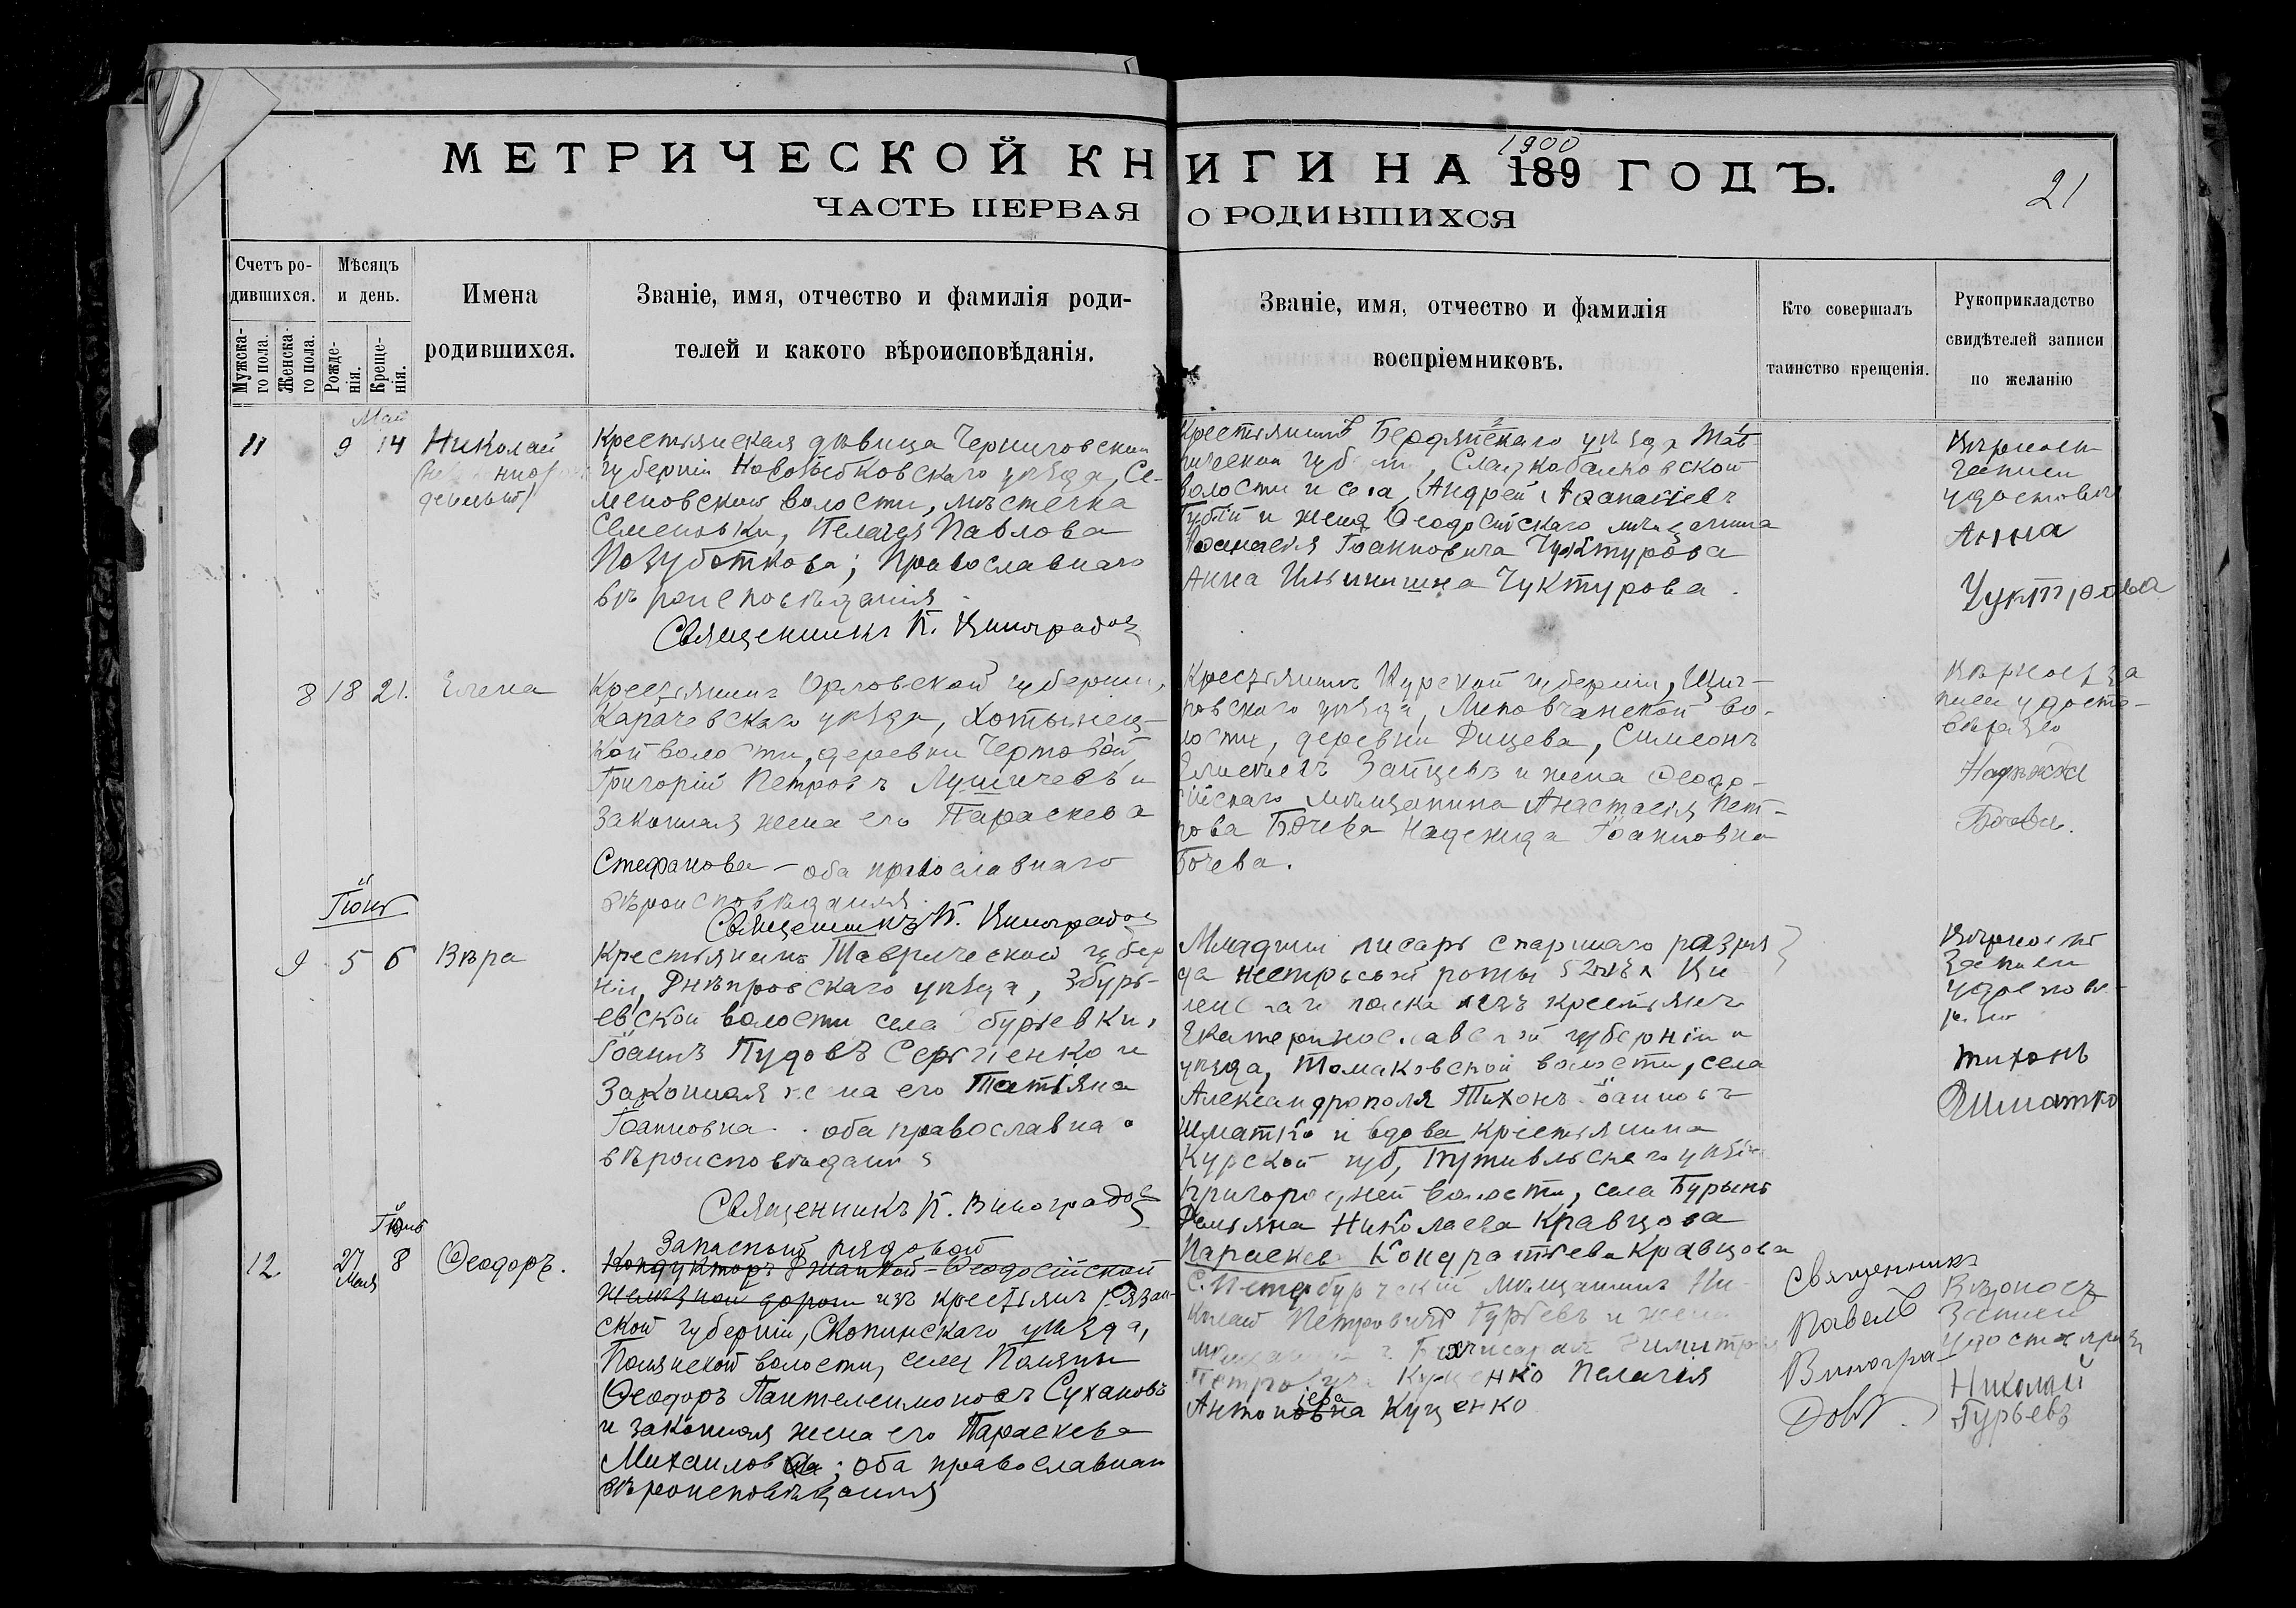 МЕТРИЧЕСКОЙ КНИГИ НА 189 ГОДЪ.
1900
21
ЧАСТЬ ПЕРВАЯ О РОДИВШИХСЯ
Счетъ ро-
дившихся.
Мужска-
го пола.
Женска-
го пола.
Мѣсяцъ
и день.
Рожде-
нія.
Креще-
нія.
Имена
родившихся.
Званіе, имя, отчество и фамилія роди-
телей и какого вѣроисповѣданія.
Званіе, имя, отчество и фамилія
воспріемниковъ.
Кто совершалъ
таинство крещенія.
Рукоприкладство
свидѣтелей записи
по желанію
Май
11 9 14 Николай
Крестьянская дѣвица Черниговской
губерніи Новозыбковскаго уѣзда, Се-
меновской волости, мѣстечка
Семеновки, Пелагея Павлова
Полуботкова; Православнаго
вѣроисповѣданія.
Священникъ П. Виноградов
Крестьянинъ Бердянскаго уѣзда Тав-
волости и села, Андрей Аѳанасіевъ
и жена Ѳеодосійскаго мѣщанина
Аѳанасія Іоанновича Чуктурова
Анна Ильинишна Чуктурова.
записи
Анна
Чуктурова
8 18 21. Елена
Крестьянинъ Орловской губерніи,
Карачевскаго уѣзда, Хотынец-
кой волости, деревни
Григорій Петровъ и
законная жена его Параскева
Стефанова - оба православнаго
вѣроисповѣданія.
Священникъ П. Виноградов
Крестьянинъ Курской губерніи, Щиг-
ровскаго уѣзда, во-
лости, деревни Симеонъ
Зайцевъ и жена Ѳеодо-
сійскаго мѣщанина Анастасія Пет-
рова Бочева Надежда Іоанновна
Бочева.
Надежда
Бочева.
Іюнь
9 5 6 Вѣра
Крестьянинъ Таврической губер
ніи, Днѣпровскаго уѣзда, Збурь-
евской волости села Збурьевки,
Іоаннъ Пудовъ Сергіенко и
законная жена его Татіяна
Іоанновна оба православна
вѣроисповѣданія
Священникъ П. Виноградов
Младшій писарь старшаго разря
да нестроевой роты 52го Ви
ленскаго полка изъ крестьянъ
Екатеринославской губерніи и
уѣзда, Томаковской волости, села
Александрополя Тихонъ Іоанновъ
Шматко и вдова крестьянина
Курской губ, Путивльскаго уѣзда
волости, села Бурынь
Демьяна Николаева Кравцова
Параскева Кондратьева Кравцова
записи
Тихонъ
Шматко
Іюнь
12. 27 8 Ѳеодоръ.
Мая
Запасный рядовой
Кондукторъ Джанкой-Ѳеодосійской
желѣзной дороги изъ крестьянъ Рязан-
ской губерніи, Скопинскаго уѣзда,
Полянской волости, села Поляны
Ѳеодоръ Пантелеимоновъ Сухановъ
и законная жена его Параскева
Михаилова; оба православнаго
вѣроисповѣданія
С. Петербургскій мѣщанинъ Ни-
колай Петровичъ Гурьевъ и жена
Куценко Пелагія
іева
Антоновна Куценко
Священникъ
Павелъ
Виногра-
довъ.
Вѣрность
записи
Николай
Гурьевъ